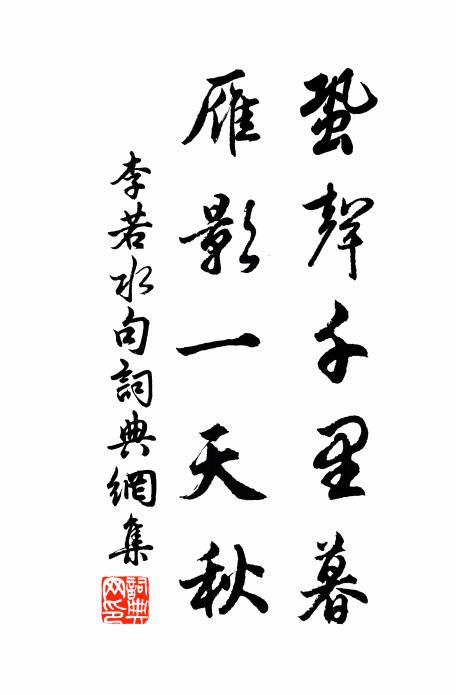 蛩聲千里暮
雁影一天秋
李若水句詞典網集
詞典网印